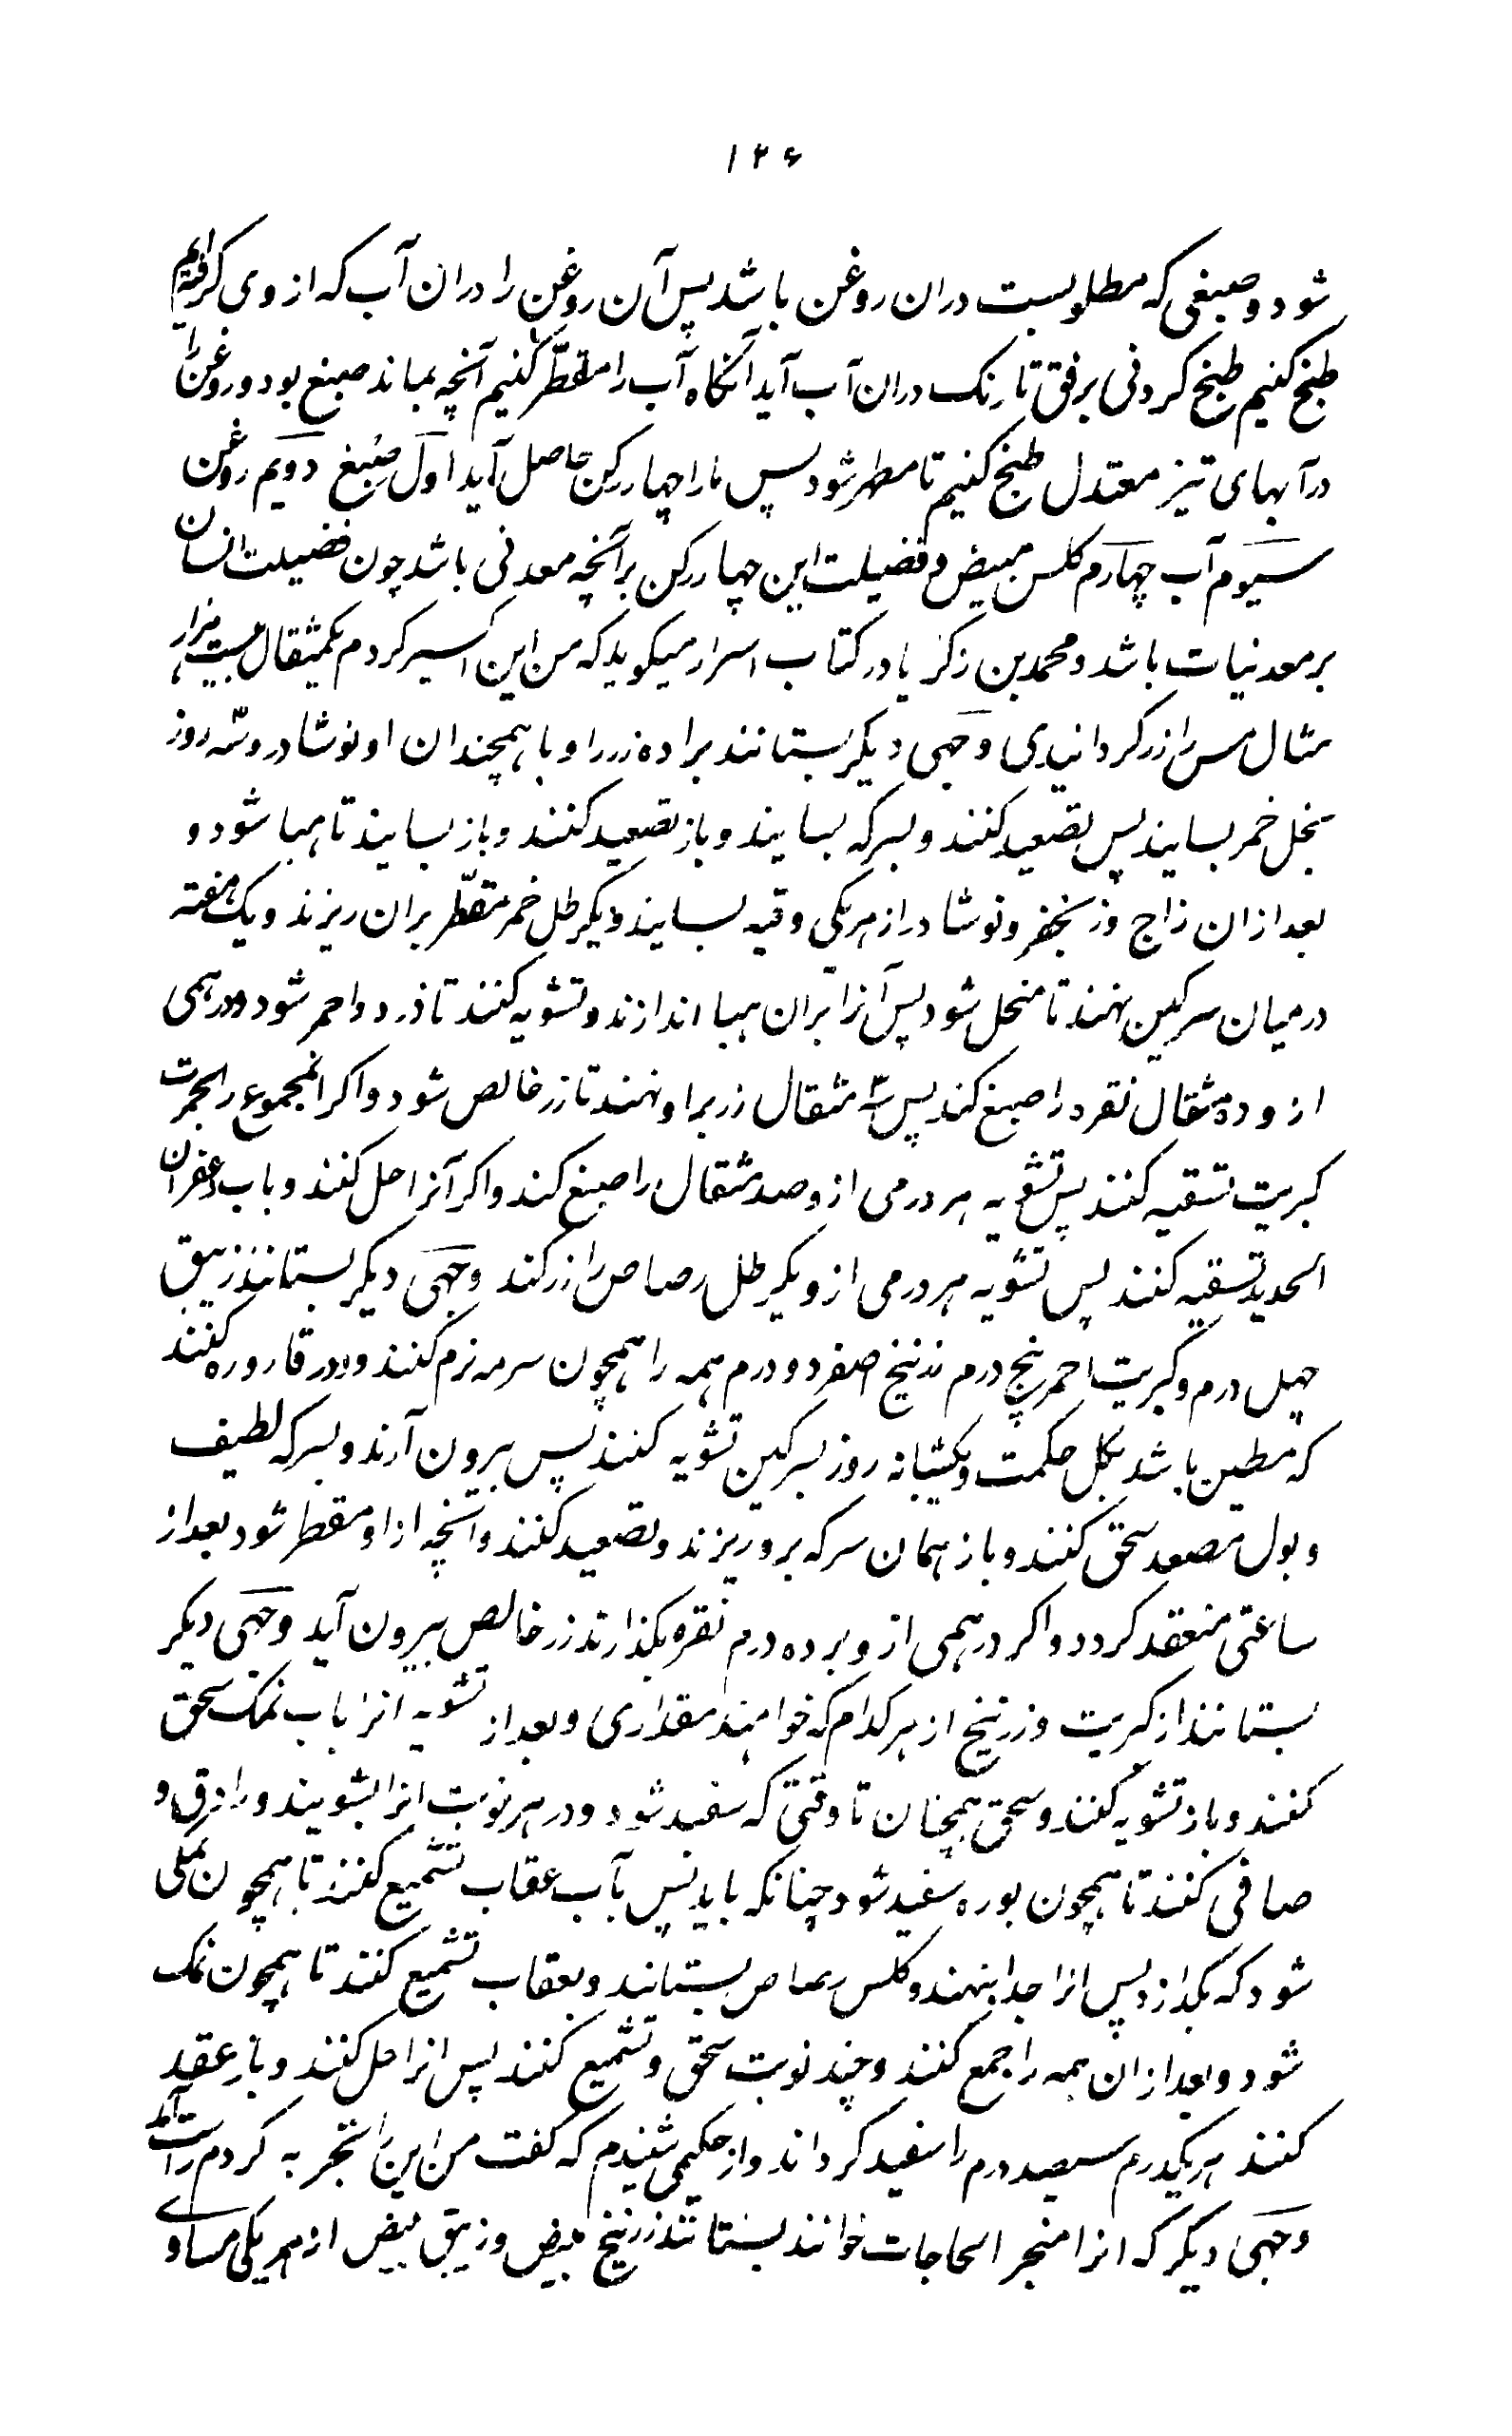 ۱۲۶
شود و صبغی که مطلوبست دران روغن باشد پس آن روغن را دران آب که از وی گرفته‌ایم
طبخ کنیم طبخ کردنی برفق تا رنک دران آب آید آنکاه آب را مقطّر کنیم آنچه بماند صبغ بود و روغن را
درآبهای تیز معتدل طبخ کنیم تا مطهر شود پس ما را چهار رکن حاصل آید اول صبغ دویم روغن
سیوم آب چهارم کلس مبیض و فضیلت این چهار رکن برآنچه معدنی باشد چون فضیلت انسان
بر معدنیات باشد و محمد بن زکریا در کتاب اسرار میکوید که من این اکسیر کردم یکمثقال بیست هزار
مثال مس را زر کردانیدی وجهی دیکر بستانند براده زر را و با همچندان او نوشادر و سه روز
بخل خمر بسایند پس تصعید کنند و بسرکه بسایند و باز تصعید کنند و باز بسایند تا هبا شود و
بعد ازان زاج و زنجفر و نوشادر از هریکی وقیه بسایند و یکرطل خمر مقطّر بران ریزند و یک هفته
درمیان سرکین نهند تا منحل شود پس آنرا بران هبا اندازند و تشویه کنند تا ذرد و احمر شود و درهمی
از و ده مثقال نقره را صبغ کند پس سه مثقال زر بر او نهند تا زر خالص شود و اکر المجموع را بحمرت
کبریت تسقیه کنند پس تشویه هر درمی از و صد مثقال را صبغ کند و اکر آنرا حل کنند و باب زعفران
الحدید تسقیه کنند پس تشویه هر درمی از و یکرطل رصاص را زر کند وجهی دیکر بستانند زیبق
چهل درم و کبریت احمر پنج درم زرنیخ اصفر دو درم همه را همچون سرمه نرم کنند و در قاروره کنند
که مطین باشد بکل حکمت و یکشبانه روز بسرکین تشویه کنند پس بیرون آرند و بسرکه لطیف
و بول مصعد سحق کنند و باز همان سرکه بر و ریزند و تصعید کنند و آنچه از او مقطر شود بعد از
ساعتی منعقد کردد و اکر درهمی از و بر ده درم نقره بکذارند زر خالص بیرون آید وجهی دیکر
بستانند از کبریت و زرنیخ از هر کدام که خواهند مقداری و بعد از تشویه انرا باب نمک سحق
کنند و باز تشویه کنند و سحق همچنان تا وقتی که سفید شود و در هر نوبت انرا بشویند و راوق و
صافی کنند تا همچون بوره سفید شود چنانکه باید پس بآب عقاب تشمیع کنند تا همچون نملی
شود که بکدازد پس انرا جدا بنهند و کلس رصاص بستانند و بعقاب تشمیع کنند تا همچون نمک
شود و بعد ازان همه را جمع کنند و چند نوبت سحق و تشمیع کنند پس انرا حل کنند و باز عقد
کنند هر یکدرم سیصد درم را سفید کرداند و از حکیمی شنیدم که کفت من این را تجربه کردم راست آمد
وجهی دیکر که انرا منجر الحاجات خوانند بستانند زرنیخ مبیض و زیبق مبیض از هر یکی مساوی